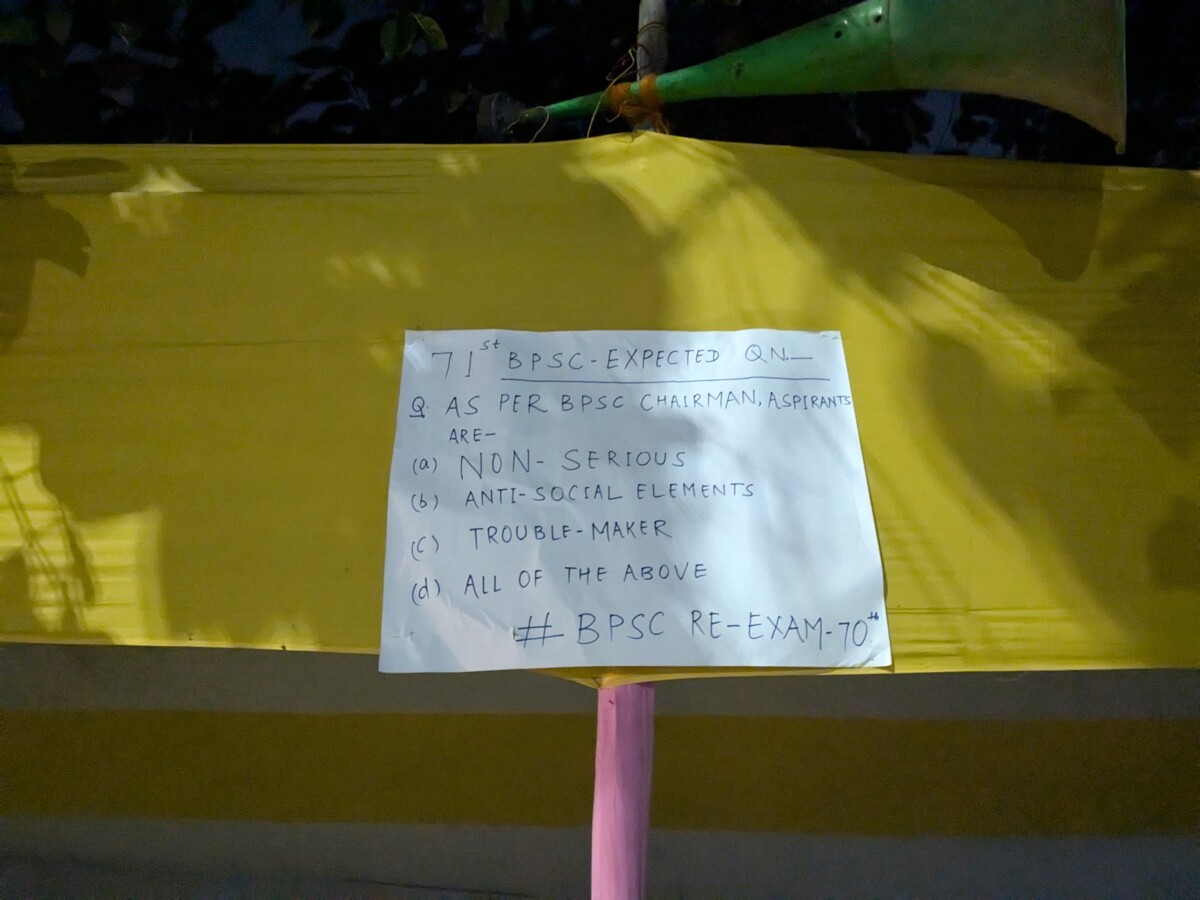 71st BPSC-EXPECTED QN.—
Q. AS PER BPSC CHAIRMAN, ASPIRANTS
ARE—
(a) NON-SERIOUS
(b) ANTI-SOCIAL ELEMENTS
(c) TROUBLE-MAKER
(d) ALL OF THE ABOVE
# BPSC RE-EXAM-70th